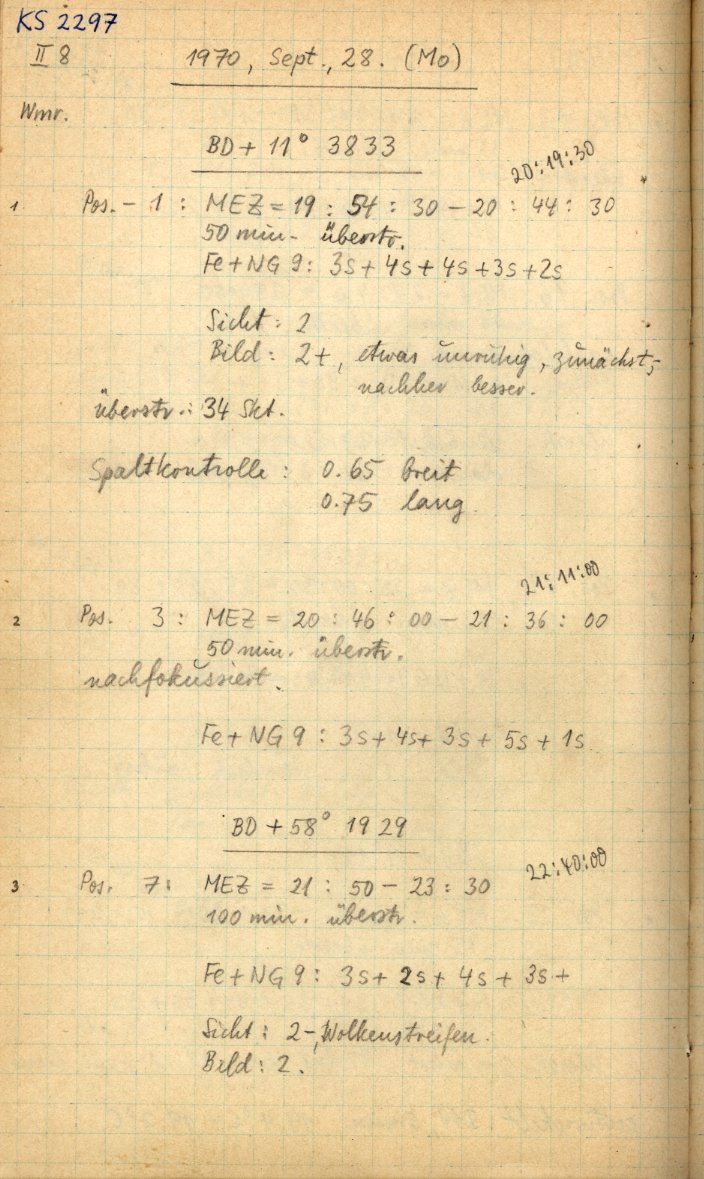 KS 2297
II 8
1970, Sept., 28. (Mo)
Wmr.
BD + 11° 3833
20:19:30
1 Pos. - 1 : MEZ = 19 : 54 : 30 - 20 : 44 : 30
50 min. überstr.
Fe + NG 9 : 3s + 4s + 4s + 3s + 2s
Sicht : 2
Bild : 2+, etwas unruhig, zunächst,
nachher besser.
überstr.: 34 Skt.
Spaltkontrolle : 0.65 breit
0.75 lang
21:11:00
2 Pos. 3 : MEZ = 20 : 46 : 00 - 21 : 36 : 00
50 min. überstr.
nachfokussiert.
Fe + NG 9 : 3s + 4s + 3s + 5s + 1s
BD + 58° 1929
22:40:00
3 Pos. 7 : MEZ = 21 : 50 - 23 : 30
100 min. überstr.
Fe + NG 9 : 3s + 2s + 4s + 3s +
Sicht : 2-, Wolkenstreifen.
Bild : 2.